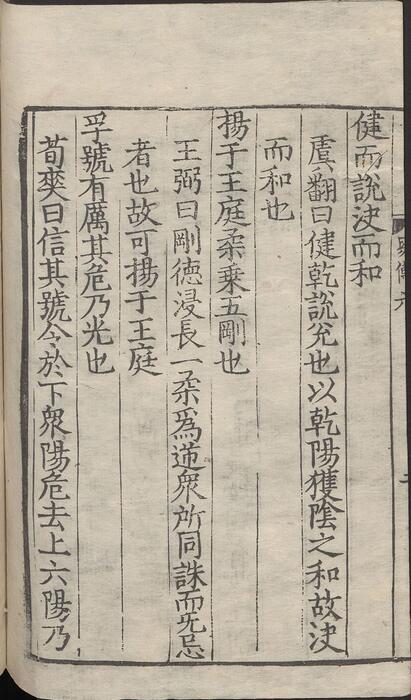 健而說決而和
虞翻曰健乾說兊也以乾陽獲隂之和故决
而和也
揚于王庭柔乗五剛也
王弼曰剛德浸長一柔爲逆衆所同誅而旡忌
者也故可揚于王庭
孚號有厲其危乃光也
荀爽曰信其號令於下衆陽危去上六陽乃
易傳